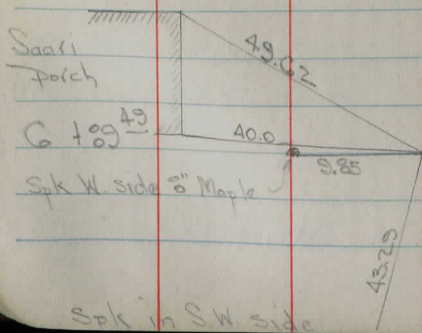 Saari
porch
49.62
40.0
9.85
Spk W. side 8" Maple
43.29
Spk in S.W. side